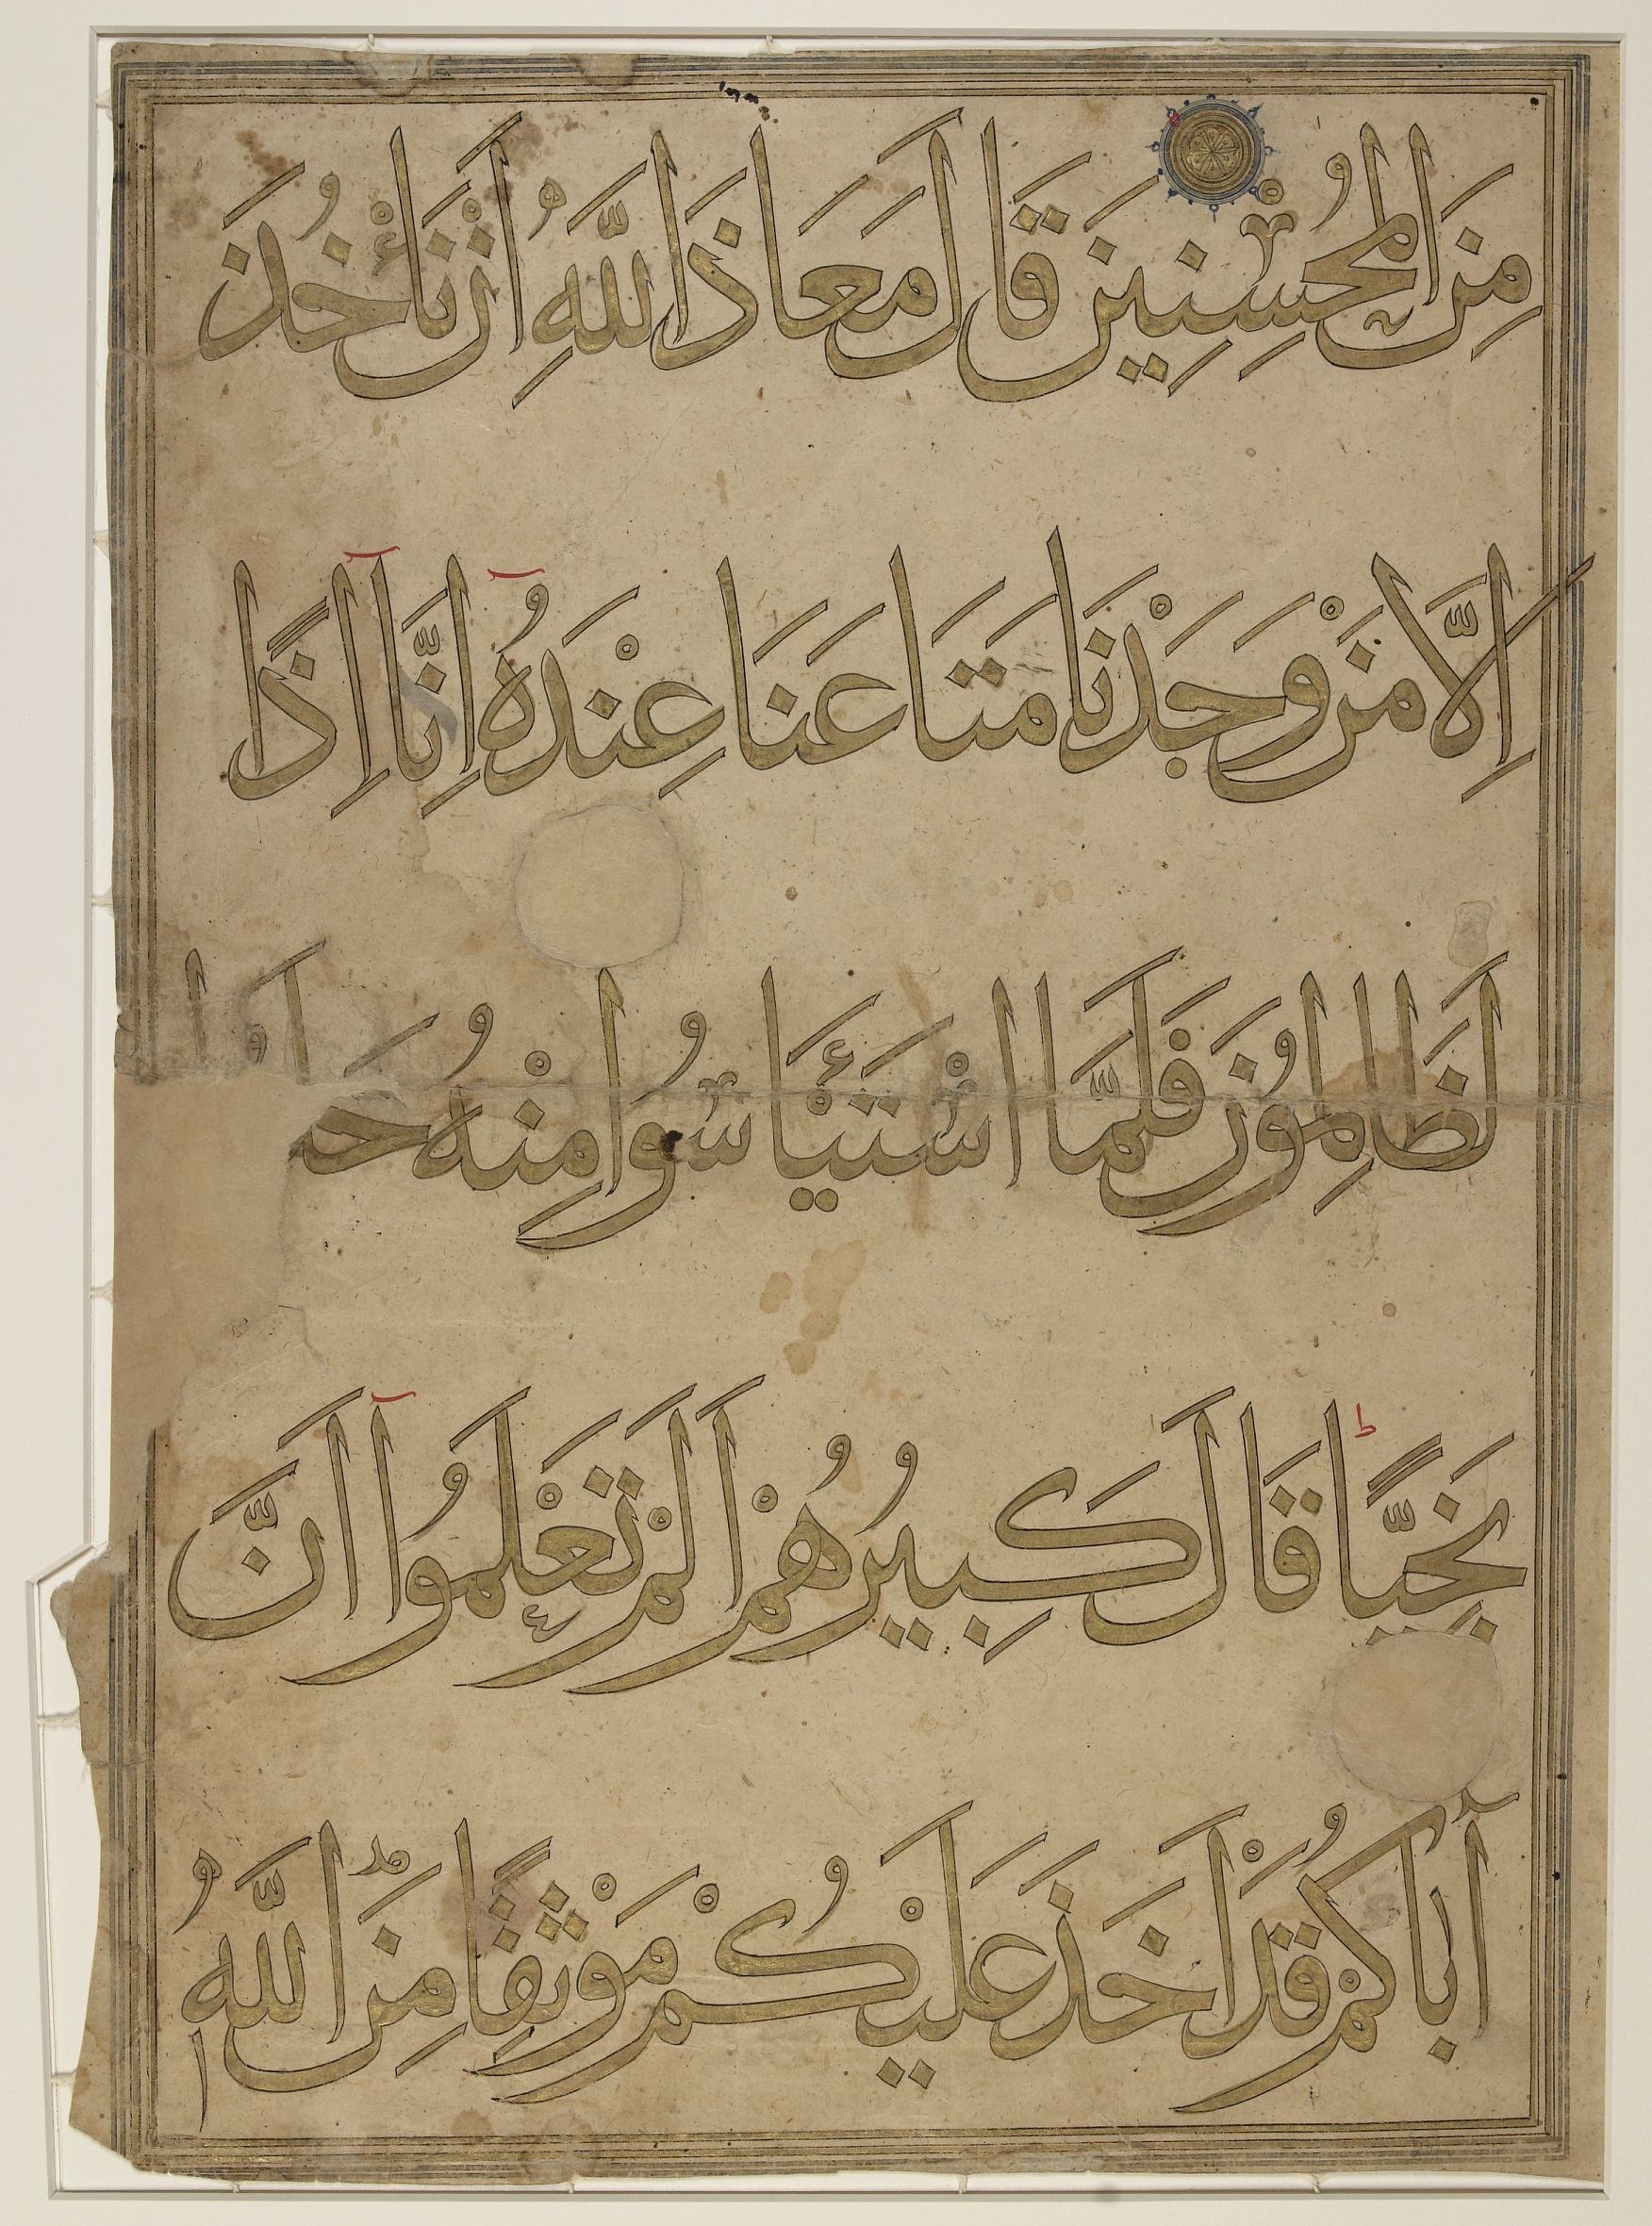 مِنَ الْمُحْسِنِينَ قَالَ مَعَاذَ اللَّهِ أَنْ نَأْخُذَ
إِلَّا مَنْ وَجَدْنَا مَتَاعَنَا عِنْدَهُ إِنَّا إِذًا
لَظَالِمُونَ فَلَمَّا اسْتَيْأَسُوا مِنْهُ
نَجِيًّا قَالَ كَبِيرُهُمْ أَلَمْ تَعْلَمُوا أَنَّ
آبَاكُمْ قَدْ أَخَذَ عَلَيْكُمْ مَوْثِقًا مِنَ اللَّهِ